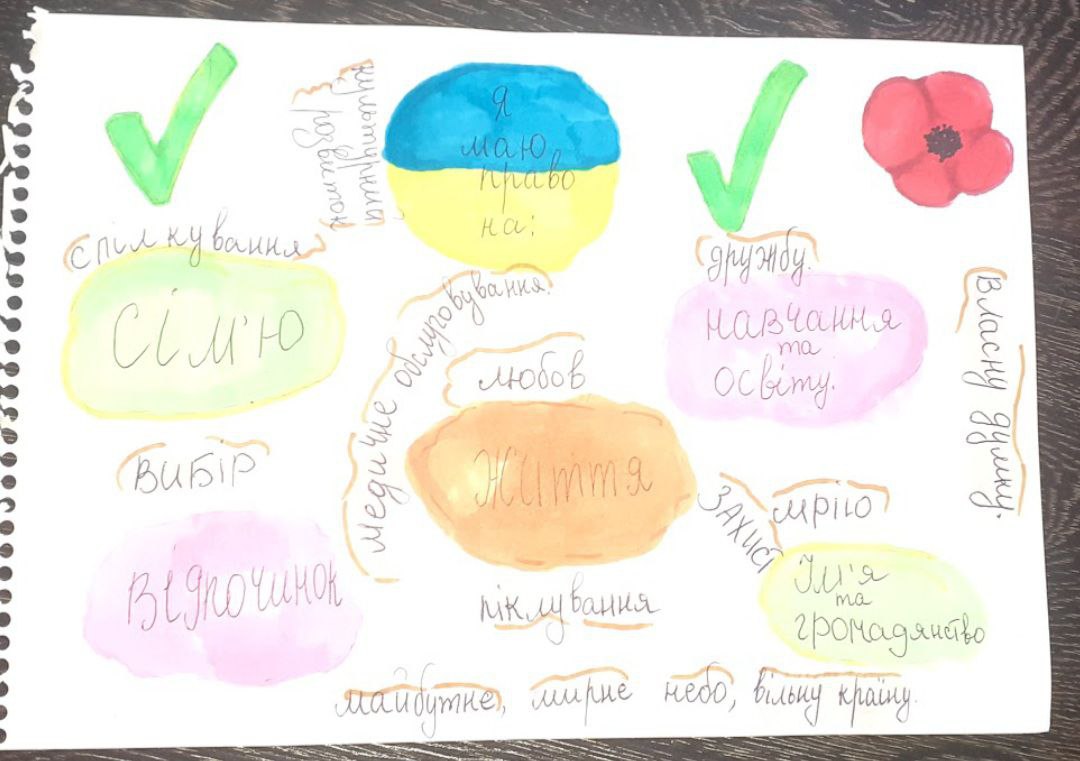 Я
маю
право
на:
спілкування
сім'ю
дружбу.
навчання
та
освіту.
власну думку.
медичне обслуговування.
любов
життя
вибір
відпочинок
захист
мрію
Ім'я
та
громадянство
піклування
майбутнє, мирне небо, вільну країну.